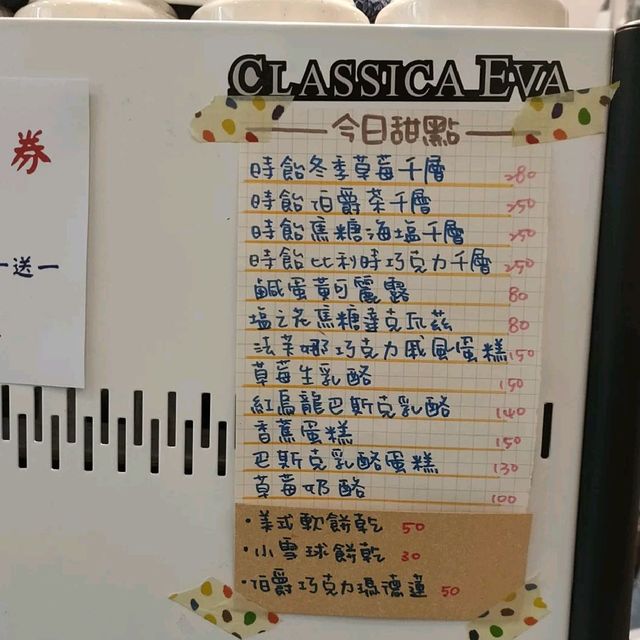 CLASSICA EVA
今日甜點
時飴冬季草莓千層 280
時飴伯爵茶千層 250
時飴焦糖海塩千層 250
時飴比利時巧克力千層 250
鹹蛋黃可麗露 80
塩之花焦糖達克瓦茲 80
法芙娜巧克力戚風蛋糕 150
草莓生乳酪 150
紅烏龍巴斯克乳酪 140
香蕉蛋糕 150
巴斯克乳酪蛋糕 130
草莓奶酪 100
·美式軟餅乾 50
·小雪球餅乾 30
·伯爵巧克力瑪德蓮 50
券
一送一